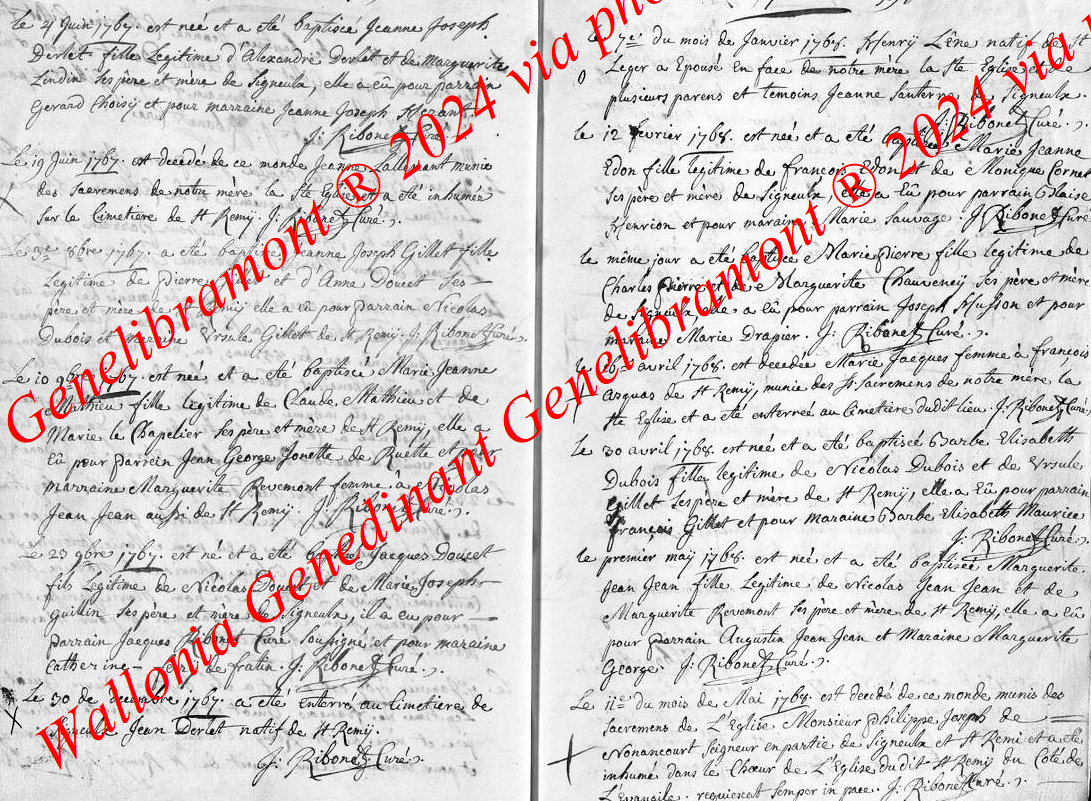 le 4 Juin 1767. est née et a été baptisée Jeanne Joseph
Derlet fille Legitime d'Alexandre Derlet et de Marguerite
Lindin ses père et mère de Signeulx, elle a eû pour parrain
Gerard Choisij et pour marraine Jeanne Joseph
J: Ribonet Curé.
Le 19 Juin 1767. est decedé de ce monde Jeanne Lallemant munie
des Sacremens de notre mère la Ste Eglise et a été inhumée
sur le Cimetiere de St Remij. J: Ribonet Curé.
Le 3e 8bre 1767. a été baptisée Jeanne Joseph Gillet fille
Legitime de Pierre Gillet et d'Anne Doucet ses
père et mère de St Remij elle a eû pour parrain Nicolas
Dubois et marraine Ursule Gillet de St Remij. J: Ribonet Curé.
Le 10 9bre 1767. est née et a été baptisée Marie Jeanne
Mathieu fille legitime de Claude Mathieu et de
Marie le Chapelier ses père et mère de St Remij, elle a
Eû pour parrein Jean George Jonette de Ruette et pour
marraine Marguerite Revemont femme à Nicolas
Jean Jean aussi de St Remij. J: Ribonet Curé.
Le 23 9bre 1767. est né et a été Jacques Doucet
fils Legitime de Nicolas Doucet et de Marie Joseph
guillin ses père et mère de Signeulx, il a eu pour
parrain Jacques Ribonet Curé soussigné et pour maraine
Catherine de fratin. J: Ribonet Curé.
Le 30 de decembre 1767. a été enterré au Cimetiere de
Signeulx Jean Derlet natif de St Remij.
J: Ribonet Curé.
Le 7e du mois de Janvier 1768. Henrij Lêne natif de St
Leger a Epousé En face de notre mère la Ste Eglise et de
plusieurs parens et temoins Jeanne Sauterne de Signeulx.
J: Ribonet Curé.
le 12 fevrier 1768. est née et a été baptisée Marie Jeanne
Edon fille legitime de francois Edon et de Monique Cornet
ses père et mère de Signeulx, elle a Eû pour parrain Blaise
Henrion et pour maraine Marie Sauvage J: Ribonet Curé
le même jour a été baptisée Marie Pierre fille legitime de
Charles Pierre et de Marguerite Chauveneij ses père et mère
de Signeulx, elle a Eû pour parrain Joseph Husson et pour
maraine Marie Drapier. J: Ribonet Curé.
le 16 avril 1768. est decedée Marie Jacques femme à francois
Arquas de St Remij, munie des St Sacremens de notre mère la
Ste Eglise et a été enterrée au Cimetiere dudit lieu. J: Ribonet Curé
Le 30 avril 1768. est née et a été baptisée Barbe Elisabeth
Dubois fille legitime de Nicolas Dubois et de Ursule
Gillet ses père et mere de St Remij, elle a Eû pour parrain
françois Gillet et pour maraine Barbe Elisabeth Maurice
J: Ribonet Curé.
le premier maij 1768. est née et a été baptisée Marguerite
Jean Jean fille Legitime de Nicolas Jean Jean et de
Marguerite Revemont ses père et mère de St Remij, elle a Eû
pour parrain Augustin Jean Jean et Maraine Marguerite
George. J: Ribonet Curé.
Le 11e du mois de Mai 1768. est decedé de ce monde munis des
sacremens de L'Eglise Monsieur Philippe Joseph de
Nonancourt Seigneur en partie de Signeulx et St Remi et a été
inhumé dans le Chœur de L'Eglise dudit St Remij du Coté de
L'Evangile. requiescat semper in pace. J: Ribonet Curé.
Genelibramont ® 2024 via
Wallonia Genedinant Genelibramont ® 2024 via